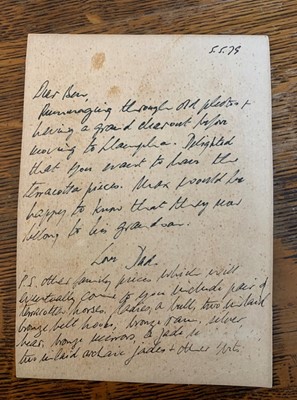 5.5.79
Dear Ben,
Rummaging through old photos +
having a grand clearout before
moving to Llangka. Delighted
that you want to have the
terracotta pieces. Max would be
happy to know that they now
belong to his grandson.
Love Dad.
P.S. other family pieces which will
eventually come to you include pair of
terracotta horses, ladies, a bull, two inlaid
bronze belt hooks, bronze ram, silver
bear, bronze mirrors, & jade
archaic jades + other